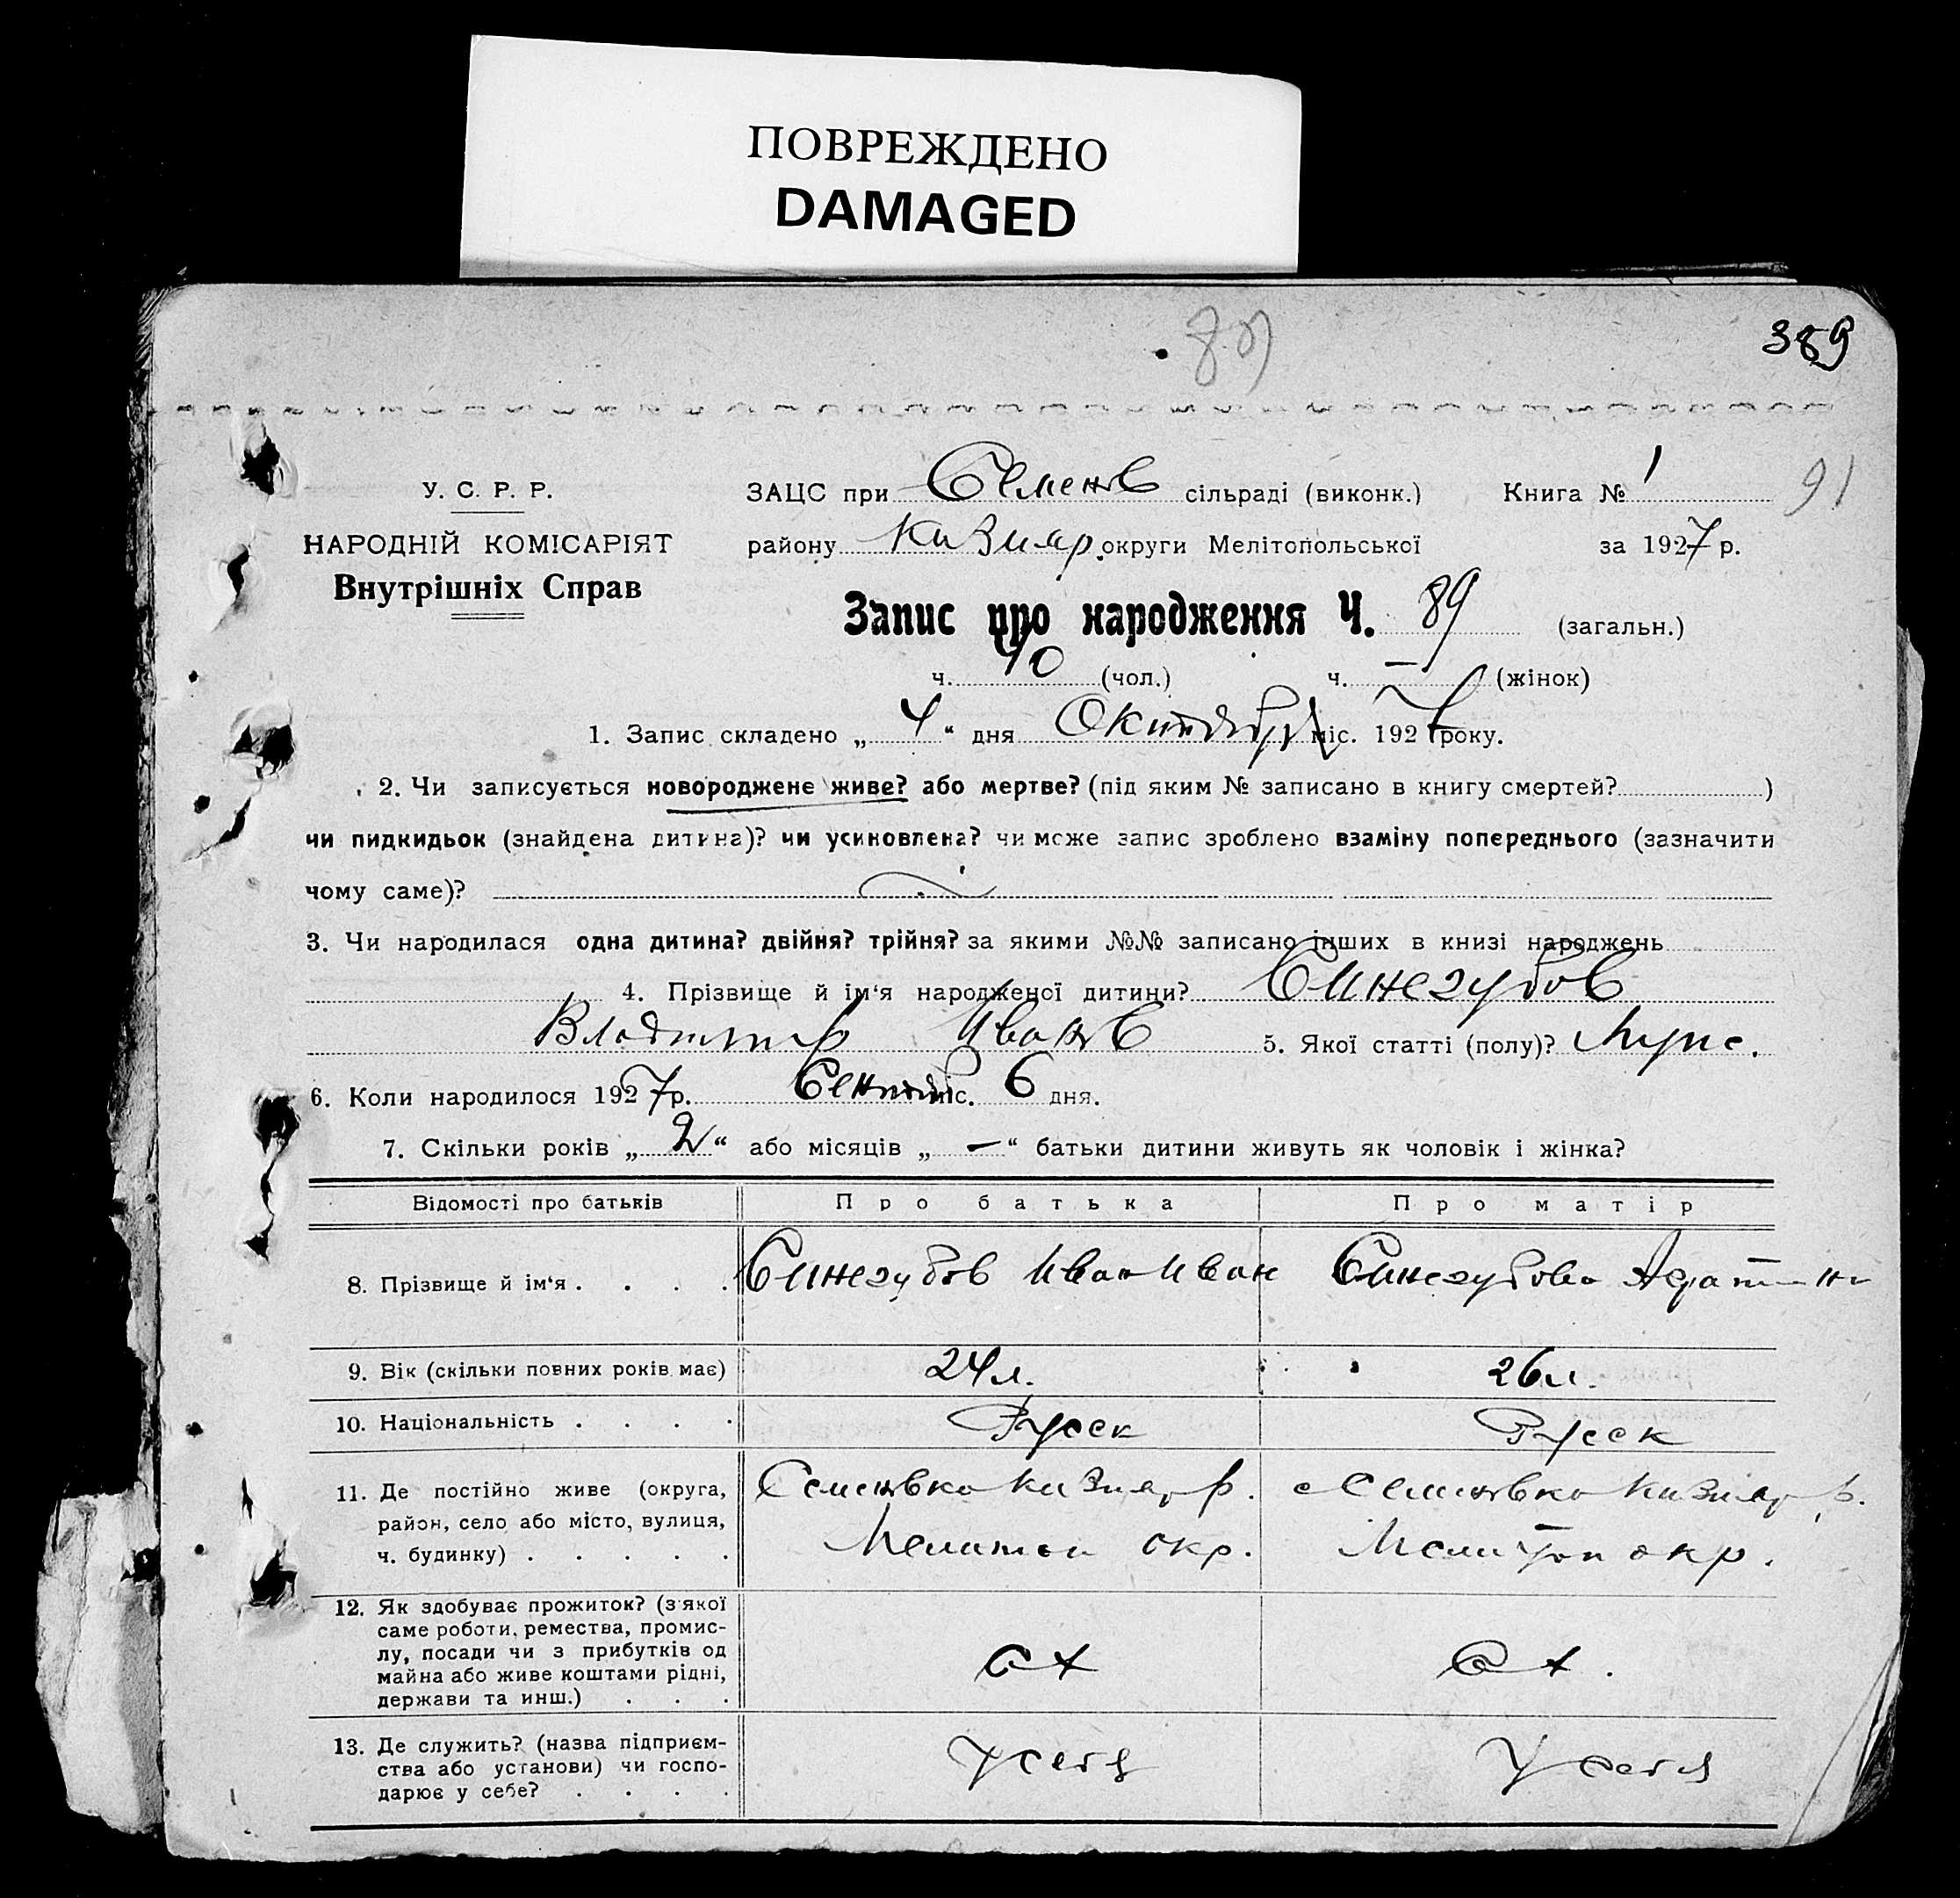 ПОВРЕЖДЕНО
DAMAGED
389
91
У. С. Р. Р.
НАРОДНІЙ КОМІСАРІЯТ
Внутрішніх Справ
ЗАЦС при Семенов сільраді (виконк.)
Книга № 1
району Кизияр. округи Мелітопольської
за 1927 р.
Запис про народження Ч. 89 (загальн.)
ч. 40 (чол.) ч. — (жінок)
1. Запис складено „ 4 “ дня Октября міс. 1927 року.
2. Чи записується новороджене живе? або мертве? (під яким № записано в книгу смертей? )
чи пидкидьок (знайдена дитина)? чи усиновлена? чи може запис зроблено взаміну попереднього (зазначити
чому саме)?
3. Чи народилася одна дитина? двійня? трійня? за якими №№ записано інших в книзі народжень
4. Прізвище й ім‘я народженої дитини? Синегубов
Владимир Иванов 5. Якої статті (полу)? Мужс.
6. Коли народилося 1927 р. Сентяб міс. 6 дня.
7. Скільки років „ 2 “ або місяців „ — “ батьки дитини живуть як чоловік і жінка?
Відомості про батьків
Про батька
Про матір
8. Прізвище й ім‘я . . . .
Синегубов Иван Иван
Синегубова
9. Вік (скільки повних років має)
24 л.
26 л.
10. Національність . . . .
Русск
Русск
11. Де постійно живе (округа,
район, село або місто, вулиця,
ч. будинку) . . . . .
Семеновка Кизияр р.
Мелитоп окр.
Семеновка Кизияр р.
Мелитоп окр.
12. Як здобуває прожиток? (з якої
саме роботи, ремества, промис-
лу, посади чи з прибутків од
майна або живе коштами рідні,
держави та инш.) . . .
с х
с х.
13. Де служить? (назва підприєм-
ства або установи) чи госпо-
дарює у себе? . . . .
у себя
у себя